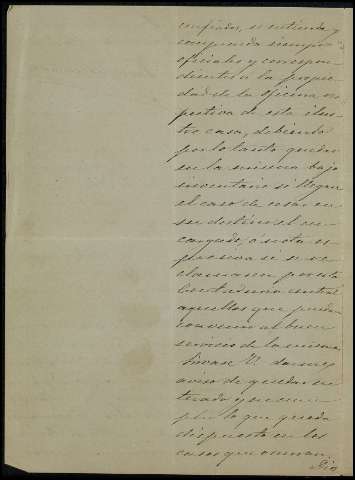 confiado, se entienda y
comprenda siempre
oficiales y correspon-
dientes a la propie-
dad de la oficina res-
pectiva de esta ilus-
tre casa, debiendo
por lo tanto quedar
en la misma bajo
inventario si llegare
el caso de cesar en
su destino el en-
cargado, ó nota es-
presiva se re-
clamasen por esta
Contaduria central
aquellos que puedan
convenir al buen
servicio de la misma
Sirvase V. darme
aviso de quedar en-
terado y en cum-
plir lo que queda
dispuesto en los
casos que ocurran.
Dios